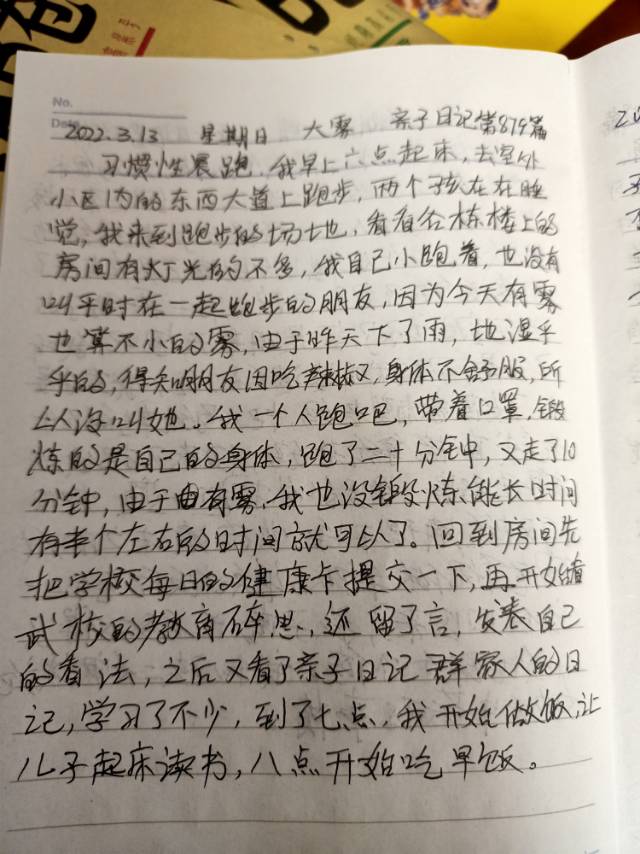 No.
Date
2022.3.13 星期日 大雾 亲子日记第879篇
习惯性晨跑,我早上六点起床,去室外
小区内的东西大道上跑步,两个孩在在睡
觉,我来到跑步的场地,看看各栋楼上的
房间有灯光的不多,我自己小跑着,也没有
叫平时在一起跑步的朋友,因为今天有雾
也算不小的雾,由于昨天下了雨,地湿乎
乎的,得知朋友因吃辣椒,身体不舒服,所
以没叫她。我一个人跑吧,带着口罩,锻
炼的是自己的身体,跑了二十分钟,又走了10
分钟,由于有雾,我也没锻炼太长时间
有半个左右的时间就可以了。回到房间先
把学校每日的健康卡提交一下,再开始看
武校的教育碎思,还留了言,发表自己
的看法,之后又看了亲子日记群家人的日
记,学习了不少,到了七点,我开始做饭,让
儿子起床读书,八点开始吃早饭。